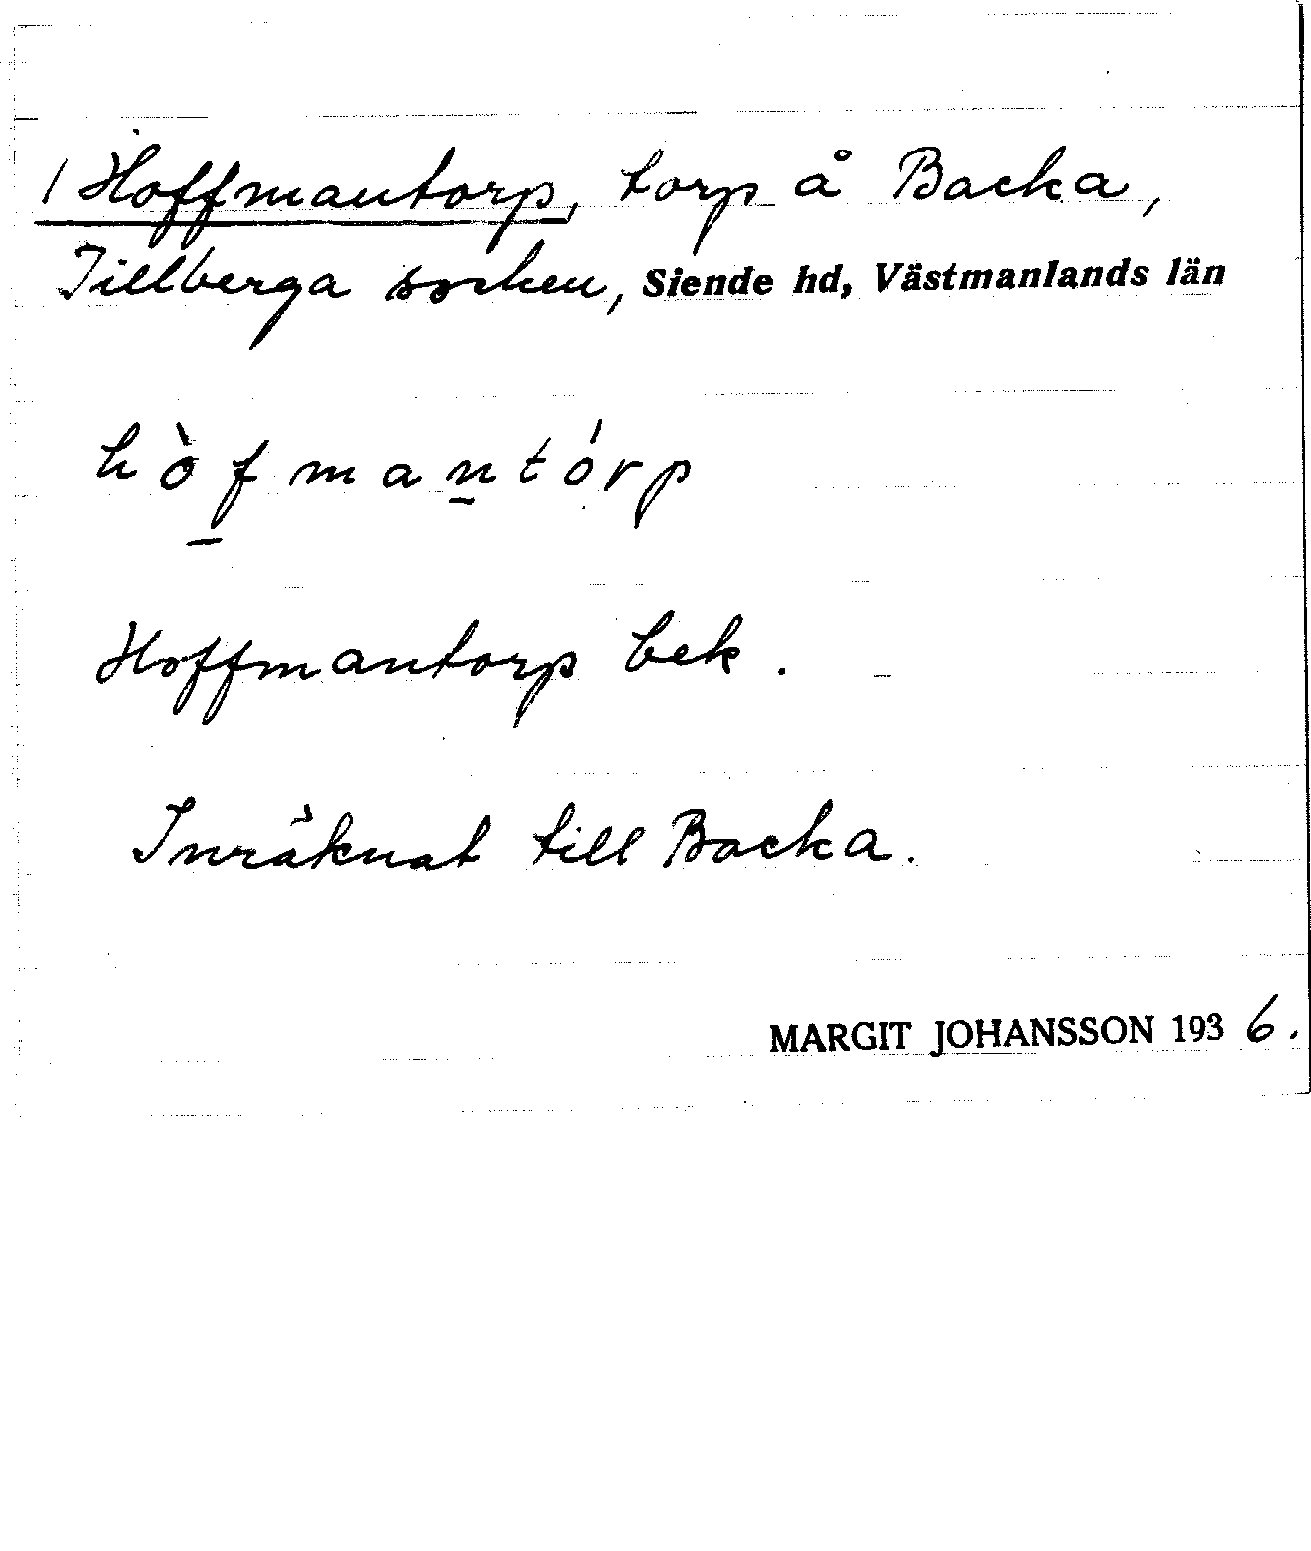 / Hoffmantorp, torp å Backa,
Tillberga socken, Siende hd, Västmanlands län
hòf̲man̲tórp
Hoffmantorp bek.
Inräknat till Backa.
MARGIT JOHANSSON 1936.